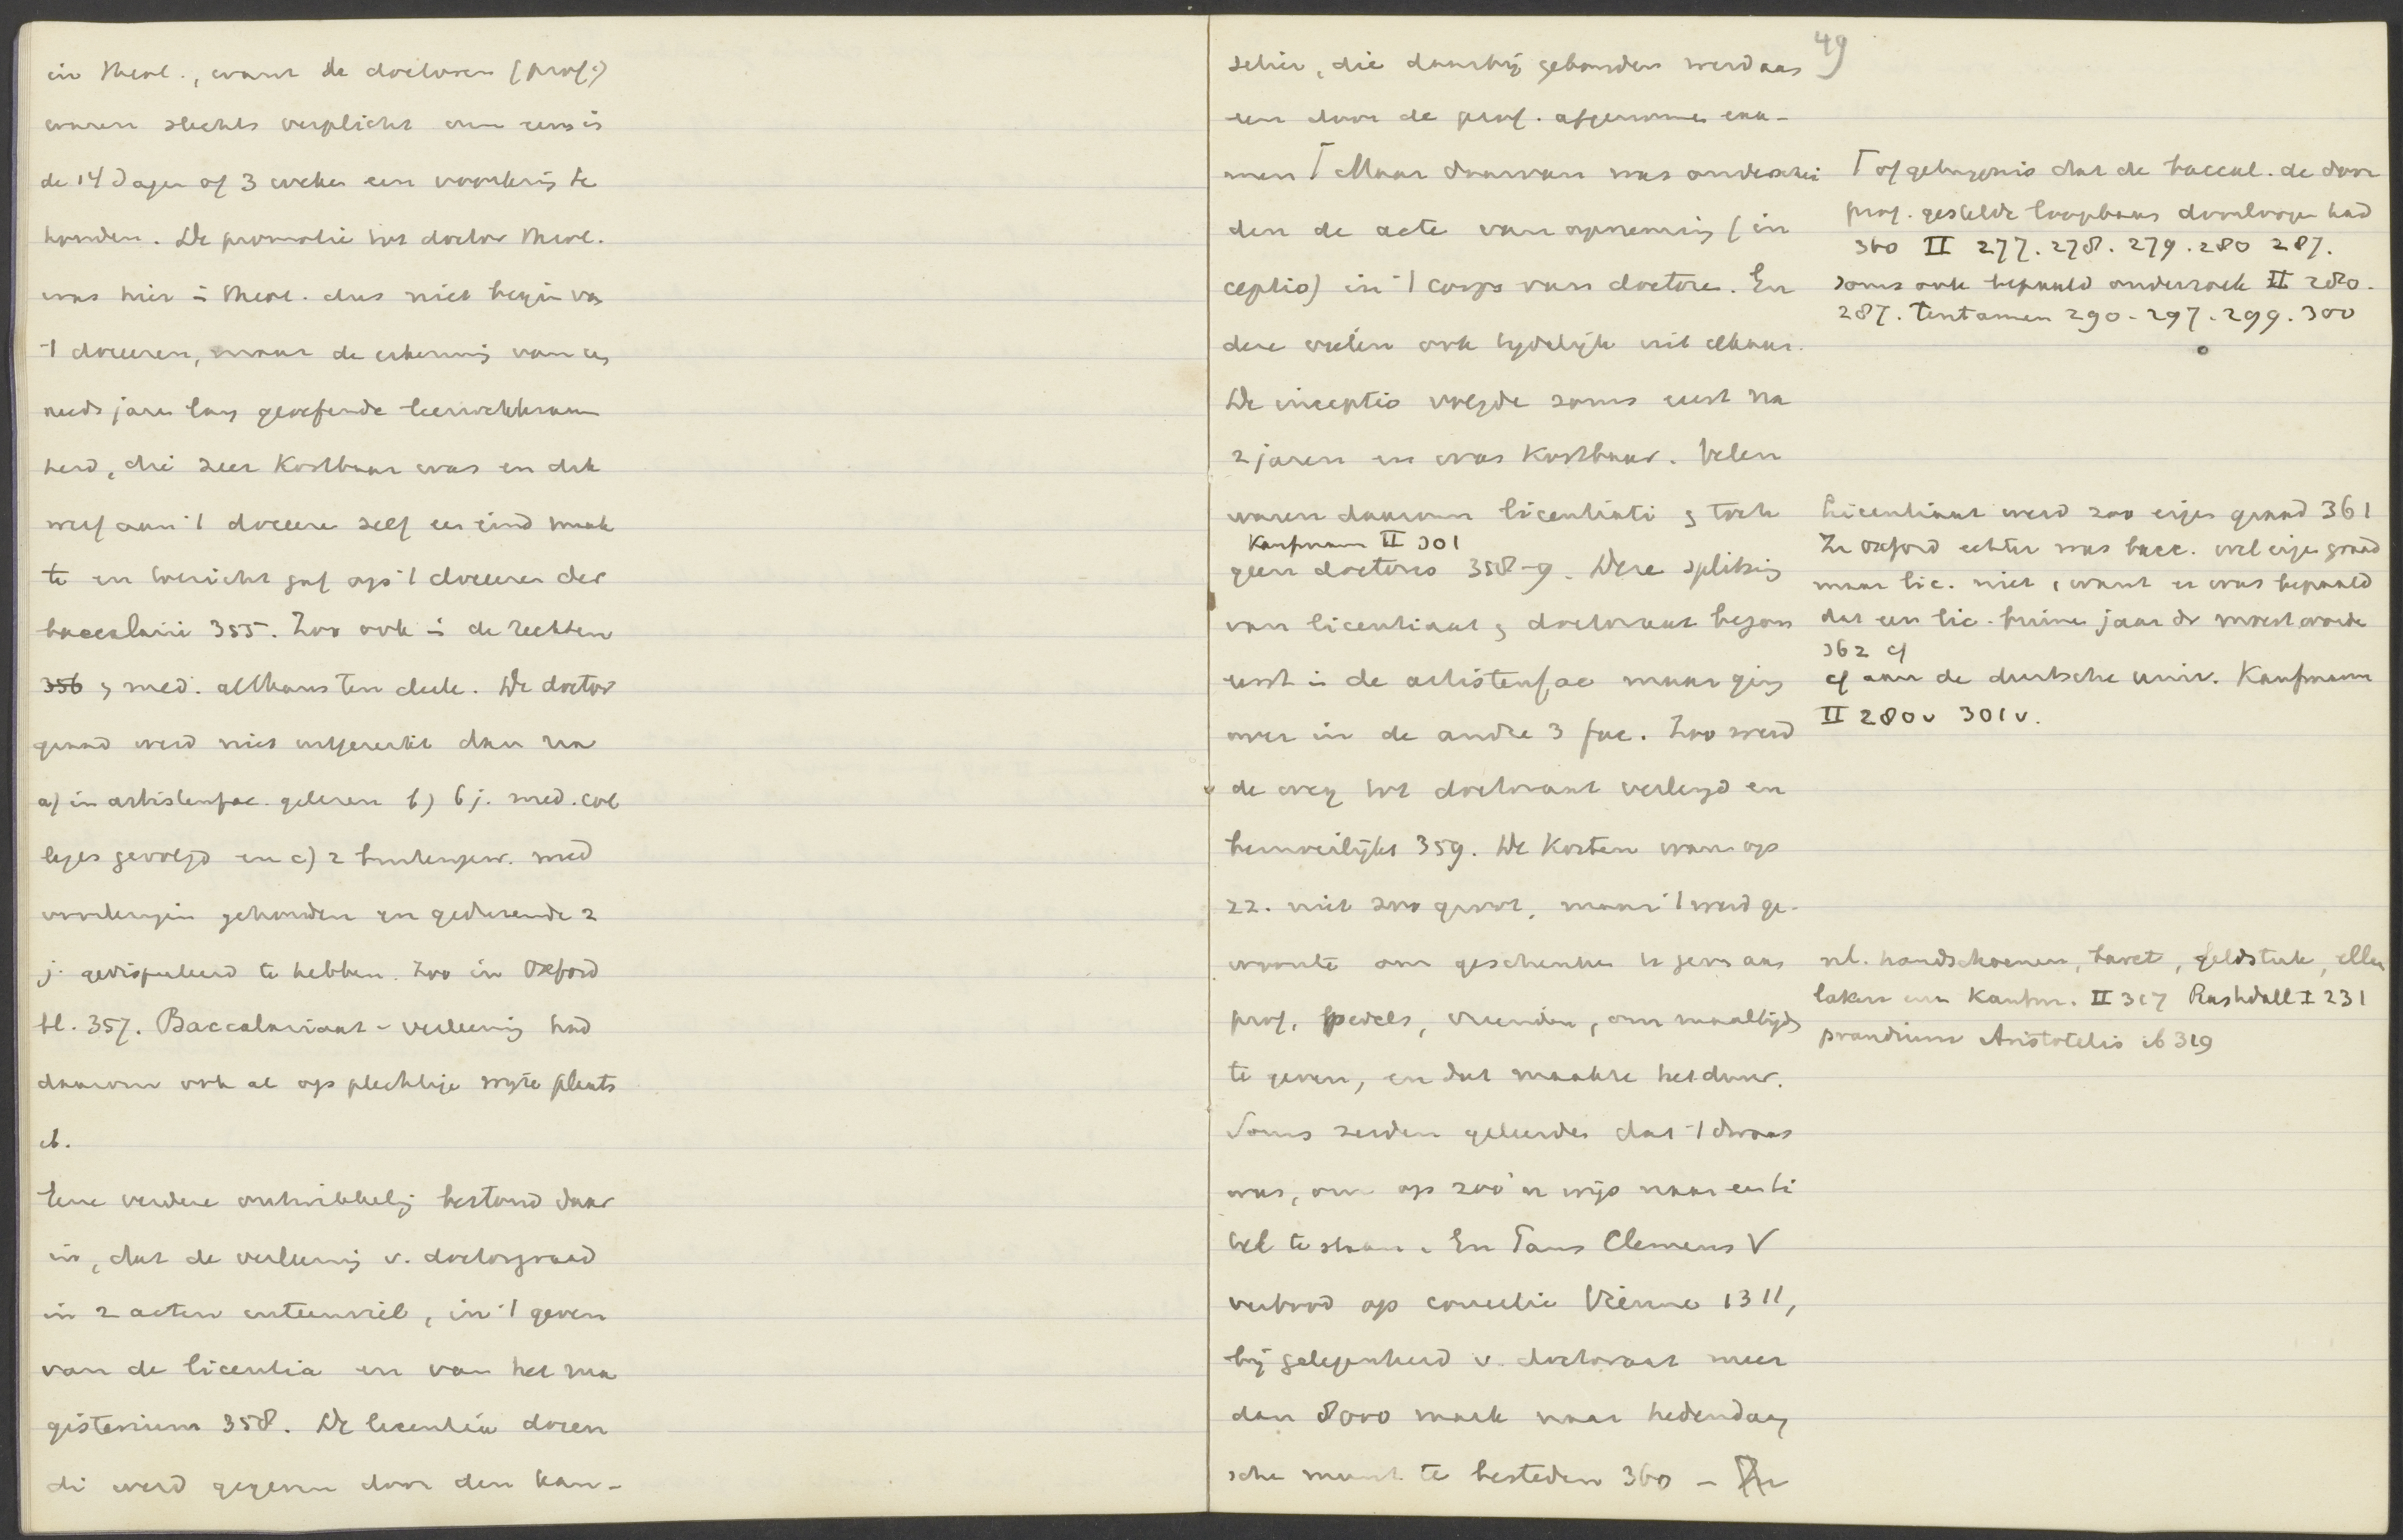 in theol., want de doctoren (prof.)
waren slechts verplicht om eens in
de 14 dagen of 3 weken een voorlezing te
houden. De promotie tot doctor theol.
was hier in theol. dus niet begin van
't doceeren, maar de erkenning van een
reeds jaren lang geoefende leerwerkzaam
heid, die zeer kostbaar was en dik
werf aan 't doceere zelf een eind maak
te en toezicht gaf op 't doceeren der
baccalarii 355. Zoo ook in de rechten
356 & med. althans ten deele. De doctor
graad werd niet uitgereikt dan na
a) in artistenfac. geleren b) 6 j. med. col
leges gevolgd en c) 2 buitengew. med
voorlezgin gehouden en gedurende 2
j. gedisputeerd te hebben. Zoo in Oxford
bl. 357. Baccalariaat-verleening had
daarom ook al op plechtige wijze plaats
ib.
Eene verdere ontwikkeling bestond daar
in, dat de verleening v. doctorgraad
in 2 acten uiteenviel, in 't geven
van de licentia en van het ma
gisterium 358. De licentia docen
di werd gegeven door den kan-
49
selier, die daarbij gebonden werd aan
een door de prof. afgenomen exa-
men ⌈ Maar daarvan was onderschei
den de acte van opneming (in
ceptio) in 't corps van doctoren. En
deze vielen ook tijdelijk uit elkaar.
De inceptio volgde soms eerst na
2 jaren en was kostbaar. Velen
waren daarom licentiati & toch
Kaufmann II 301
geen doctores 358-9. Deze splitsing
van licentiaat & doctoraat begon
eerst in de artistenfac maar ging
over in de andre 3 fac. Zoo werd
de weg tot doctoraat verlengd en
bemoeilijkt 359. De kosten waren op
zz. niet zoo groot, maar 't werd ge-
woonte om geschenken te geven aan
prof, pedels, vrienden, om maaltijden
te geven, en dat maakte het duur.
Soms zeiden geleerden dat 't dwaas
was, om op zoo'n wijs naar een ti
tel te staan. En Paus Clemens V
verbood op concilie Vienne 1311,
bij gelegenheid v. doctoraat meer
dan 8000 mark naar hedendaag
sche munt te besteden 360 –
⌈ of getuigenis dat de baccal. de door
prof. gestelde loopbaan doorloopen had
360 II 277. 278. 279. 280 287.
soms ook bepaald onderzoek II 280.
287. tentamen 290. 297. 299. 300
Licentiaat werd zoo eigen graad 361
In Oxford echter was bacc. wel eigen graad
maar lic. niet, want er was bepaald
dat een lic. binnen jaar dr moest worden
362 cf
cf aan de duitsche univ. Kaufmann
II 280v 301v.
nl. handschoenen, baret, geldstuk, ellen
laken enz Kaufm. II 317 Rashdall I 231
prandium Aristotelis ib 319